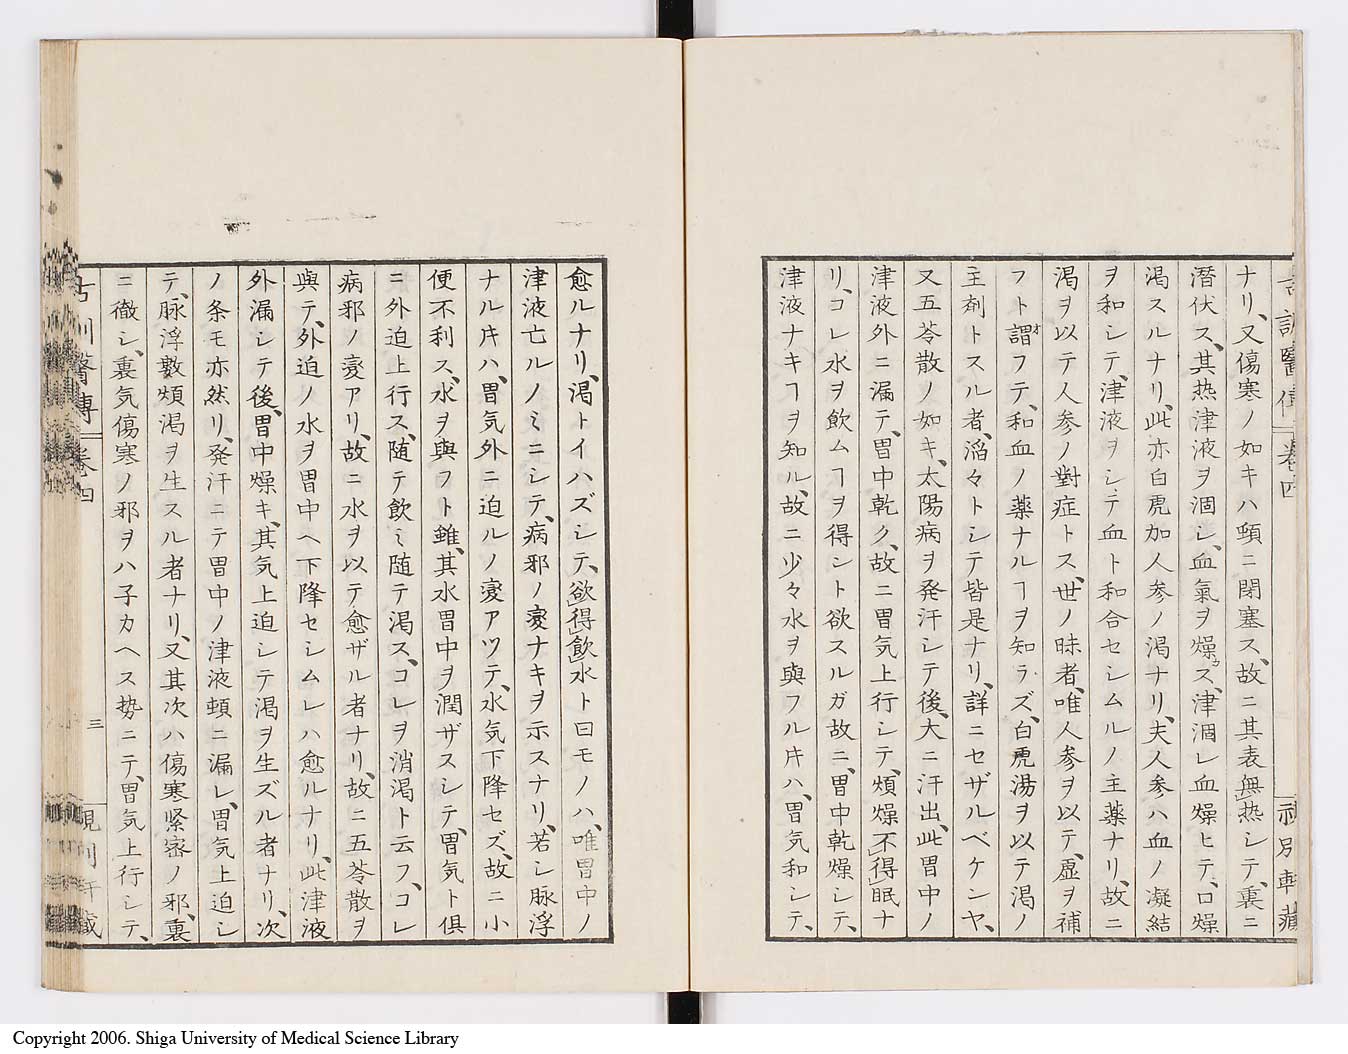 ナリ、又傷寒ノ如キハ頸ニ閉塞ス、故ニ其表無熱シテ、裏ニ
潜伏ス、其热津液ヲ涸シ、血氣ヲ燥ス、津涸レ血燥ヒテ、口燥
渇スルナリ、此亦白虎加人参ノ渇ナリ、夫人参ハ血ノ凝結
ヲ和シテ、津液ヲシテ血ト和合セシムルノ主薬ナリ、故ニ
渇ヲ以テ人参ノ對症トス、世ノ昧者、唯人参ヲ以テ、虚ヲ補
フト謂フテ、和血ノ薬ナルヿヲ知ラズ、白虎湯ヲ以テ渇ノ
主剤トスル者、滔々トシテ皆是ナリ、詳ニセザルベケンヤ、
又五苓散ノ如キ、太陽病ヲ発汗シテ後、大ニ汗出、此胃中ノ
津液外ニ漏テ、胃中乾ク、故ニ胃気上行シテ、煩燥不得眠ナ
リ、コレ水ヲ飲ムヿヲ得ント欲スルガ故ニ、胃中乾燥シテ、
津液ナキヿヲ知ル、故ニ少々水ヲ與フル片ハ、胃気和シテ、
愈ルナリ、渇トイハズシテ、欲得飲水ト曰モノハ、唯胃中ノ
津液亡ルノミニシテ、病邪ノ変ナキヲ示スナリ、若シ脉浮
ナル片ハ、胃気外ニ迫ルノ変アツテ、水気下降セズ、故ニ小
便不利ス、水ヲ與フト雖、其水胃中ヲ潤ザスシテ、胃気ト俱
ニ外迫上行ス、随テ飲ミ随テ渇ス、コレヲ消渇ト云フ、コレ
病邪ノ変アリ、故ニ水ヲ以テ愈ザル者ナリ、故ニ五苓散ヲ
與テ、外迫ノ水ヲ胃中ヘ下降セシムレハ愈ルナリ、此津液
外漏シテ後、胃中燥キ、其気上迫シテ渇ヲ生ズル者ナリ、次
ノ条モ亦然リ、発汗ニテ胃中ノ津液頓ニ漏レ、胃気上迫シ
テ、脉浮數煩渇ヲ生スル者ナリ、又其次ハ傷寒緊密ノ邪、裏
ニ徹シ、裏気傷寒ノ邪ヲハ子カヘス势ニテ、胃気上行シテ、
卷四
三
Copyright 2006. Shiga University of Medical Science Library